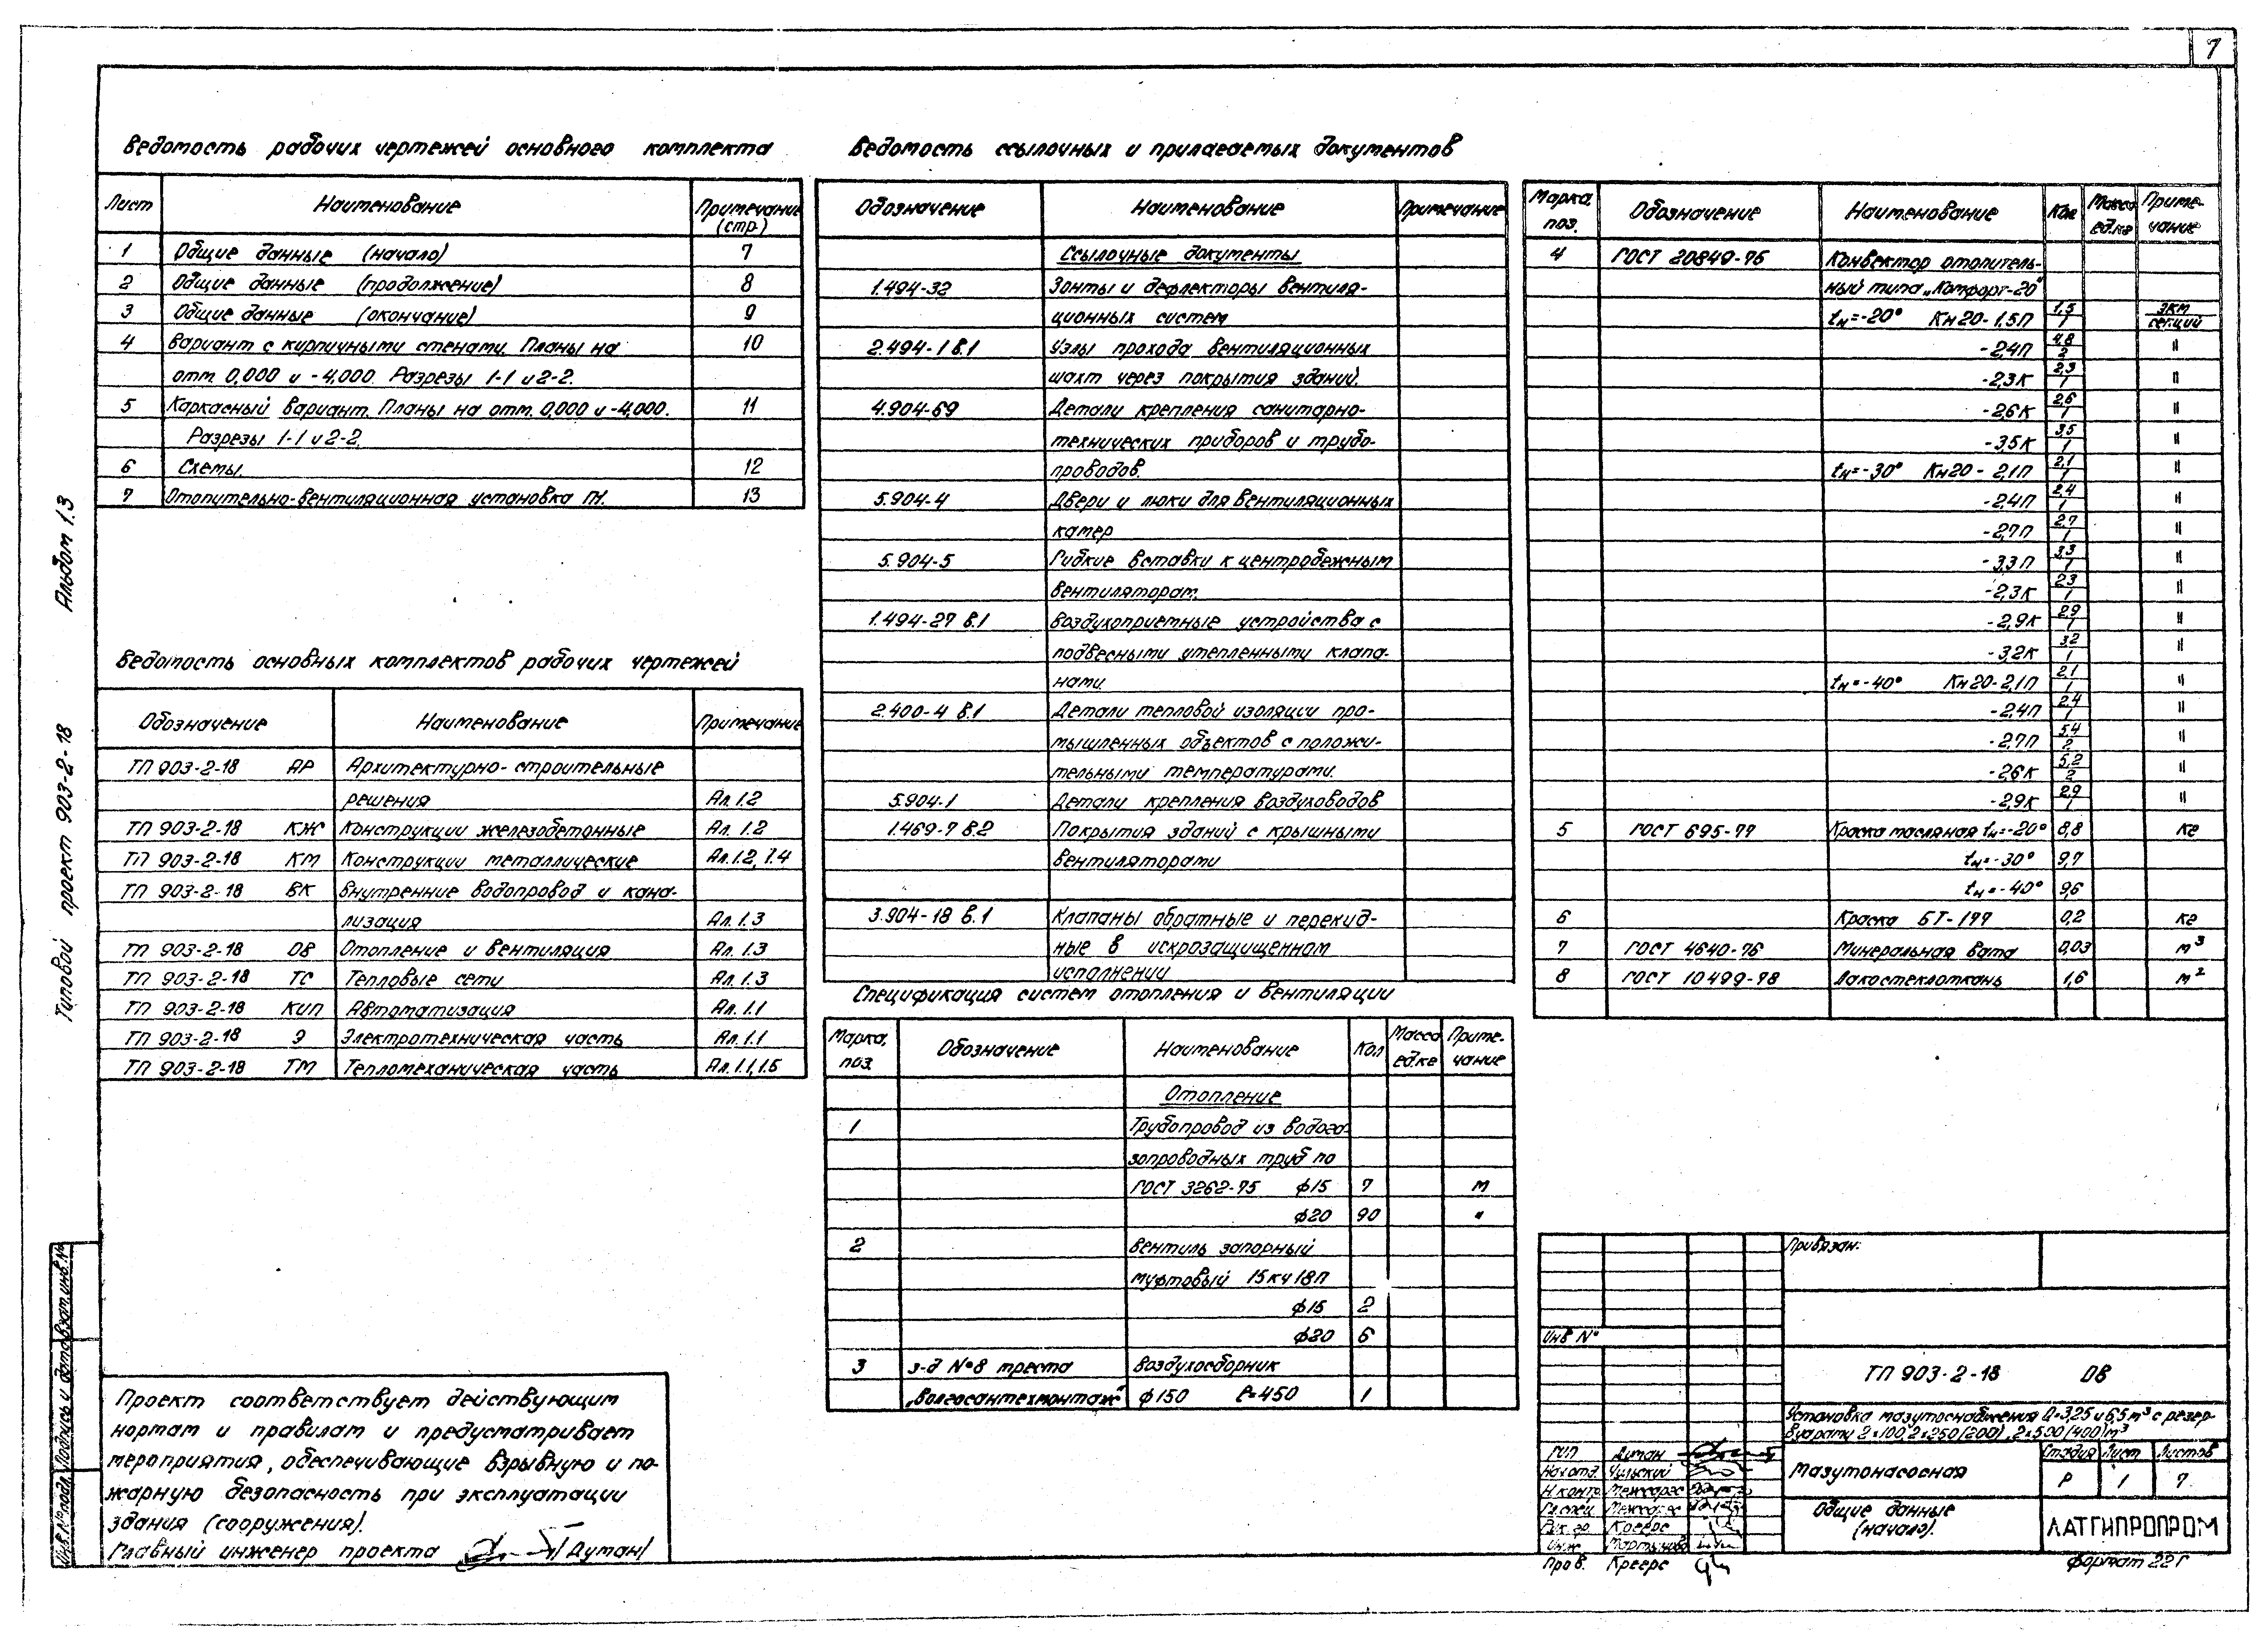 7
Ведомость рабочих чертежей основного комплекта
Лист Наименование Примечание (стр.)
1 Общие данные (начало) 7
2 Общие данные (продолжение) 8
3 Общие данные (окончание) 9
4 Вариант с кирпичными стенами. Планы на 10
отм. 0,000 и -4,000. Разрезы 1-1 и 2-2.
5 Каркасный вариант. Планы на отм. 0,000 и -4,000. 11
Разрезы 1-1 и 2-2.
6 Схемы. 12
7 Отопительно-вентиляционная установка П1. 13
Ведомость основных комплектов рабочих чертежей
Обозначение Наименование Примечание
ТП 903-2-18 АР Архитектурно-строительные
решения Ал. 1.2
ТП 903-2-18 КЖ Конструкции железобетонные Ал. 1.2
ТП 903-2-18 КМ Конструкции металлические Ал. 1.2, 7.4
ТП 903-2-18 ВК Внутренние водопровод и кана-
лизация Ал. 1.3
ТП 903-2-18 ОВ Отопление и вентиляция Ал. 1.3
ТП 903-2-18 ТС Тепловые сети Ал. 1.3
ТП 903-2-18 КИП Автоматизация Ал. 1.1
ТП 903-2-18 Э Электротехническая часть Ал. 1.1
ТП 903-2-18 ТМ Тепломеханическая часть Ал. 1.1, 1.5
Проект соответствует действующим
нормам и правилам и предусматривает
мероприятия, обеспечивающие взрывную и по-
жарную безопасность при эксплуатации
здания (сооружения).
Главный инженер проекта /Думан/
Ведомость ссылочных и прилагаемых документов
Обозначение Наименование Примечание
Ссылочные документы
1.494-32 Зонты и дефлекторы вентиля-
ционных систем
2.494-1 в.1 Узлы прохода вентиляционных
шахт через покрытия зданий.
4.904-69 Детали крепления санитарно-
технических приборов и трубо-
проводов.
5.904-4 Двери и люки для вентиляционных
камер
5.904-5 Гибкие вставки к центробежным
вентиляторам.
1.494-27 в.1 Воздухоприемные устройства с
подвесными утепленными клапа-
нами.
2.400-4 в.1 Детали тепловой изоляции про-
мышленных объектов с положи-
тельными температурами.
5.904-1 Детали крепления воздуховодов
1.469-7 в.2 Покрытия зданий с крышными
вентиляторами
3.904-18 в.1 Клапаны обратные и перекид-
ные в искрозащищенном
исполнении
Спецификация систем отопления и вентиляции
Марка, поз. Обозначение Наименование Кол Масса ед.кг Приме-чание
Отопление
1 Трубопровод из водога-
зопроводных труб по
ГОСТ 3262-75 ф15 7 м
ф20 90 "
2 Вентиль запорный
муфтовый 15кч18п
ф15 2
ф20 6
3 з-д №8 треста Воздухосборник
"Волгосантехмонтаж" ф150 ℓ=450 1
Марка, поз. Обозначение Наименование Кол Масса ед.кг Приме-чание
4 ГОСТ 20849-75 Конвектор отопитель-
ный типа „Комфорт-20"
tн=-20° Кн20-1,5П 1,5/1 экм/секций
-2,4П 4,8/2 "
-2,3К 2,3/1 "
-2,6К 2,6/1 "
-3,5К 3,5/1 "
tн=-30° Кн20-2,1П 2,1/1 "
-2,4П 2,4/1 "
-2,7П 2,7/1 "
-3,3П 3,3/1 "
-2,3К 2,3/1 "
-2,9К 2,9/1 "
-3,2К 3,2/1 "
tн=-40° Кн20-2,1П 2,1/1 "
-2,4П 2,4/1 "
-2,7П 5,4/2 "
-2,6К 5,2/2 "
-2,9К 2,9/1 "
5 ГОСТ 695-77 Краска масляная tн=-20° 8,8 кг
tн=-30° 9,7
tн=-40° 9,6
6 Краска БТ-177 0,2 кг
7 ГОСТ 4640-76 Минеральная вата 0,03 м³
8 ГОСТ 10499-78 Лакостеклоткань 1,6 м²
Привязан:
Инв №
ТП 903-2-18 ОВ
Установка мазутоснабжения Q=3,25 и 6,5 м³ с резер-
вуарами 2×100, 2×250(200), 2×500(400)м³
ГИП Думан
Нач.отд. Чульский
Н.контр.
Гл.спец.
Рук.гр. Креерс
Инж. Мартынова
Пров. Креерс
Мазутонасосная
Стадия Лист Листов
Р 1 7
Общие данные
(начало).
ЛАТГИПРОПРОМ
Формат 22Г
Альбом 1.3
Типовой проект 903-2-18
Инв.№ подл. Подпись и дата Взам.инв.№